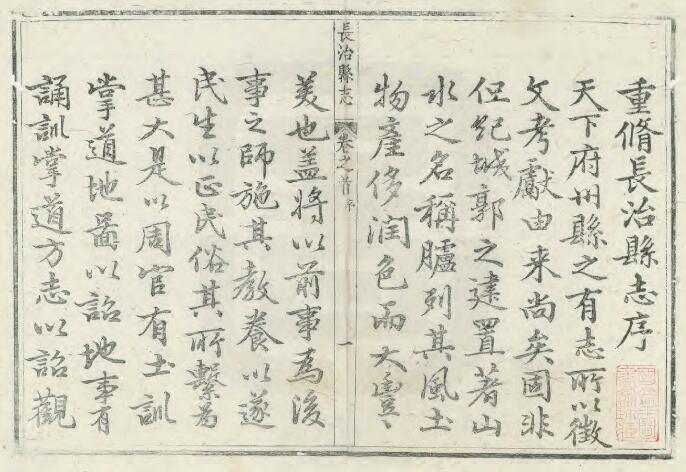 重脩長治縣志序
天下府州縣之有志所以徵
文考獻由来尚矣固非
但紀城郭之建置著山
水之名稱臚列其風土
物產侈潤色而大
長治縣志 卷之首 序 一
美也盖將以前事為後
事之師施其教養以遂
民生以正民俗其所繫為
甚大是以周官有土訓
掌道地啚以詔地事有
誦訓掌道方志以詔觀